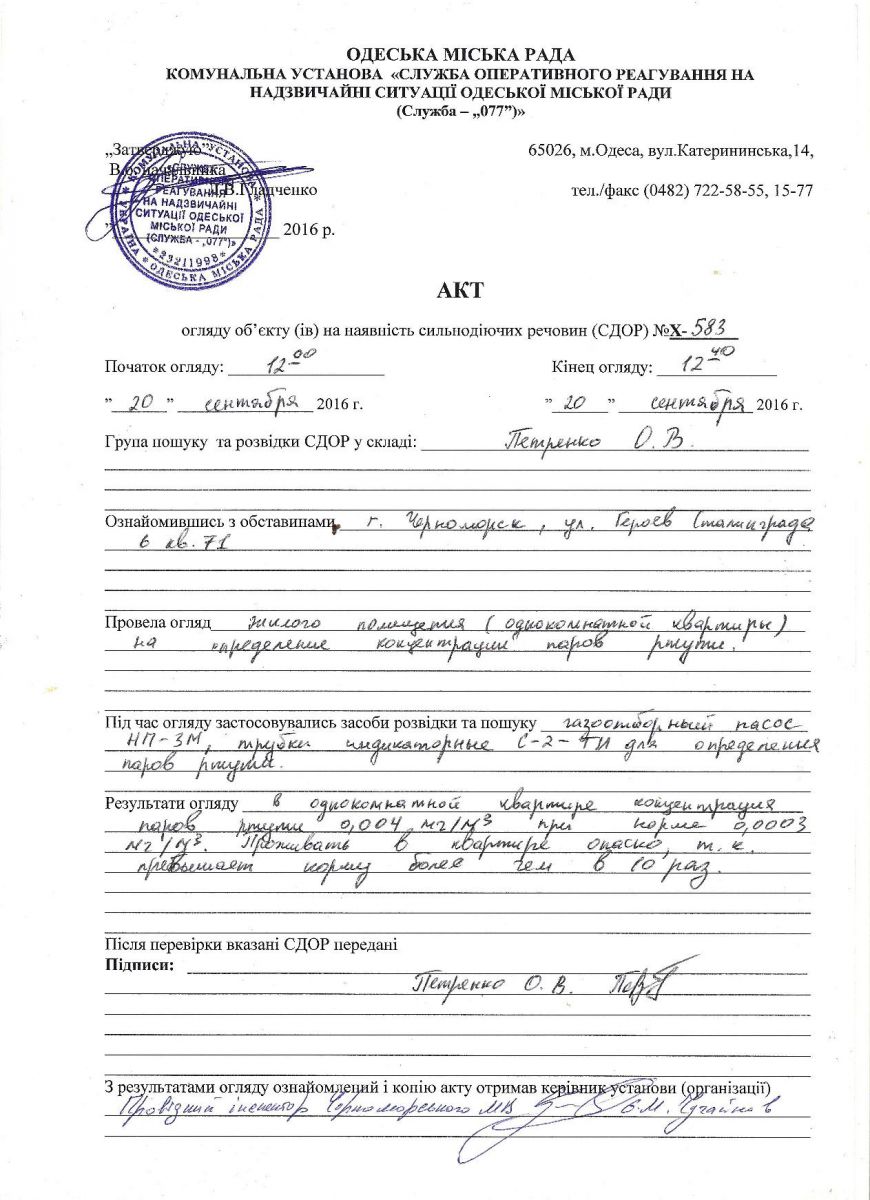 ОДЕСЬКА МІСЬКА РАДА
КОМУНАЛЬНА УСТАНОВА «СЛУЖБА ОПЕРАТИВНОГО РЕАГУВАННЯ НА
НАДЗВИЧАЙНІ СИТУАЦІЇ ОДЕСЬКОЇ МІСЬКОЇ РАДИ
(Служба – „077”)»
„Затверджую”
65026, м.Одеса, вул.Катерининська,14,
В.о.начальника
Л.В.Гладченко
тел./факс (0482) 722-58-55, 15-77
2016 р.
КОМУНАЛЬНА УСТАНОВА
«СЛУЖБА
ОПЕРАТИВНОГО
РЕАГУВАННЯ
НА НАДЗВИЧАЙНІ
СИТУАЦІЇ ОДЕСЬКОЇ
МІСЬКОЇ РАДИ
(СЛУЖБА - „077”)»
*23211998*
УКРАЇНА * ОДЕСЬКА МІСЬКА РАДА *
АКТ
огляду об’єкту (ів) на наявність сильнодіючих речовин (СДОР) №Х- 583
Початок огляду: 12 00
Кінец огляду: 12 40
” 20 ” сентября 2016 г.
” 20 ” сентября 2016 г.
Група пошуку та розвідки СДОР у складі: Петренко О.В.
Ознайомившись з обставинами г. Черноморск, ул. Героев Сталинграда
6 кв. 71
Провела огляд жилого помещения (однокомнатной квартиры)
на определение концентрации паров ртути.
Під час огляду застосовувались засоби розвідки та пошуку газоотборный насос
НП-3М, трубки индикаторные С-2- ТИ для определения
паров ртути.
Результати огляду в однокомнатной квартире концентрация
паров ртути 0,004 мг/м³ при норме 0,0003
мг/м³. Проживать в квартире опасно, т.к.
превышает норму более чем в 10 раз.
Після перевірки вказані СДОР передані
Підписи:
Петренко О. В.
З результатами огляду ознайомлений і копію акту отримав керівник установи (організації)
Провідний інспектор Чорноморського МВ